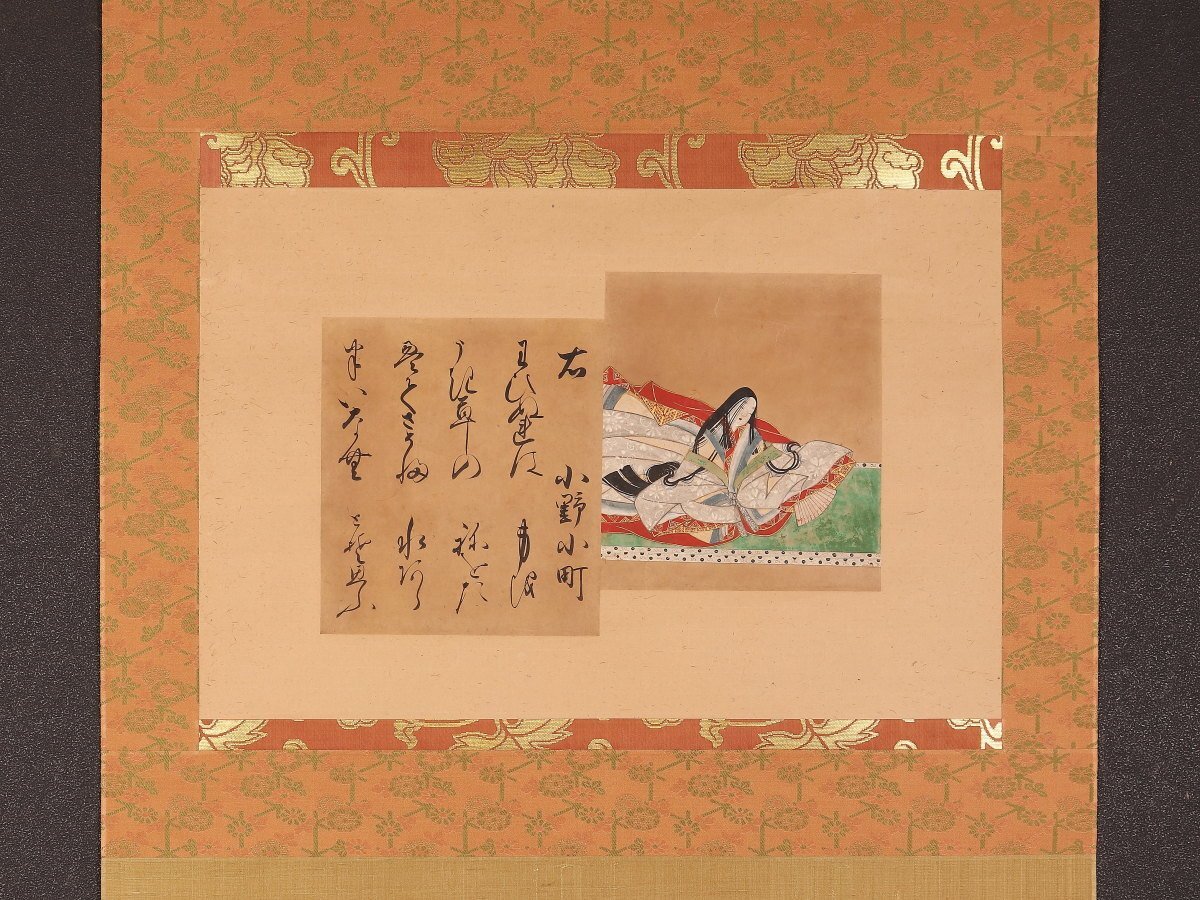 右 小野小町
わひぬれは 身を
うき草の ねをた
えてさそふ 水あら
はいなむ とそ思ふ